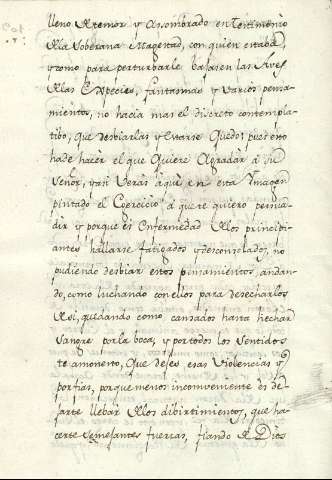 lleno de temor y asombrado en testimonio
de la Soberana Magestad, con quien estaba,
y como para perturbarle bajasen las Aves
de las Expecies, fantasmas y varios pensa-
mientos, no hacia mas el discreto contempla-
tibo, que desbiarlas y estarse Quedo; pues esto
hade hacer el que Quiere Agradar à Su
Señor, y asi Veras aqui en esta Ymagen
pintado el Exercicio à que te quiero persua-
dir y porque es Enfermedad de los principi-
antes hallarse fatigados y desconsolados, no
pudiendo desbiar estos pensamientos, andan-
do, como luchando con ellos para desecharlos
de si, quedando como cansados hasta hechar
Sangre por la boca, y por todos los Sentidos
te amonesto, Que dejes esas Violencias y
porfias, porque menos inconveniente es de-
jarte llebar de los dibirtimientos, que ha-
certe Semejantes fuerzas, fiando de Dios